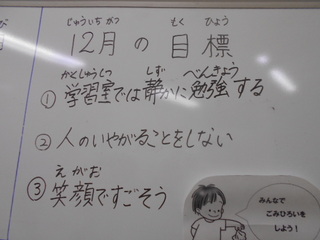 じゅういちがつ もくひょう
12月の目標
がくしゅうしつ しず べんきょう
①学習室では静かに勉強する
②人のいやがることをしない
えがお
③笑顔ですごそう
みんなで
ごみひろいを
しよう!